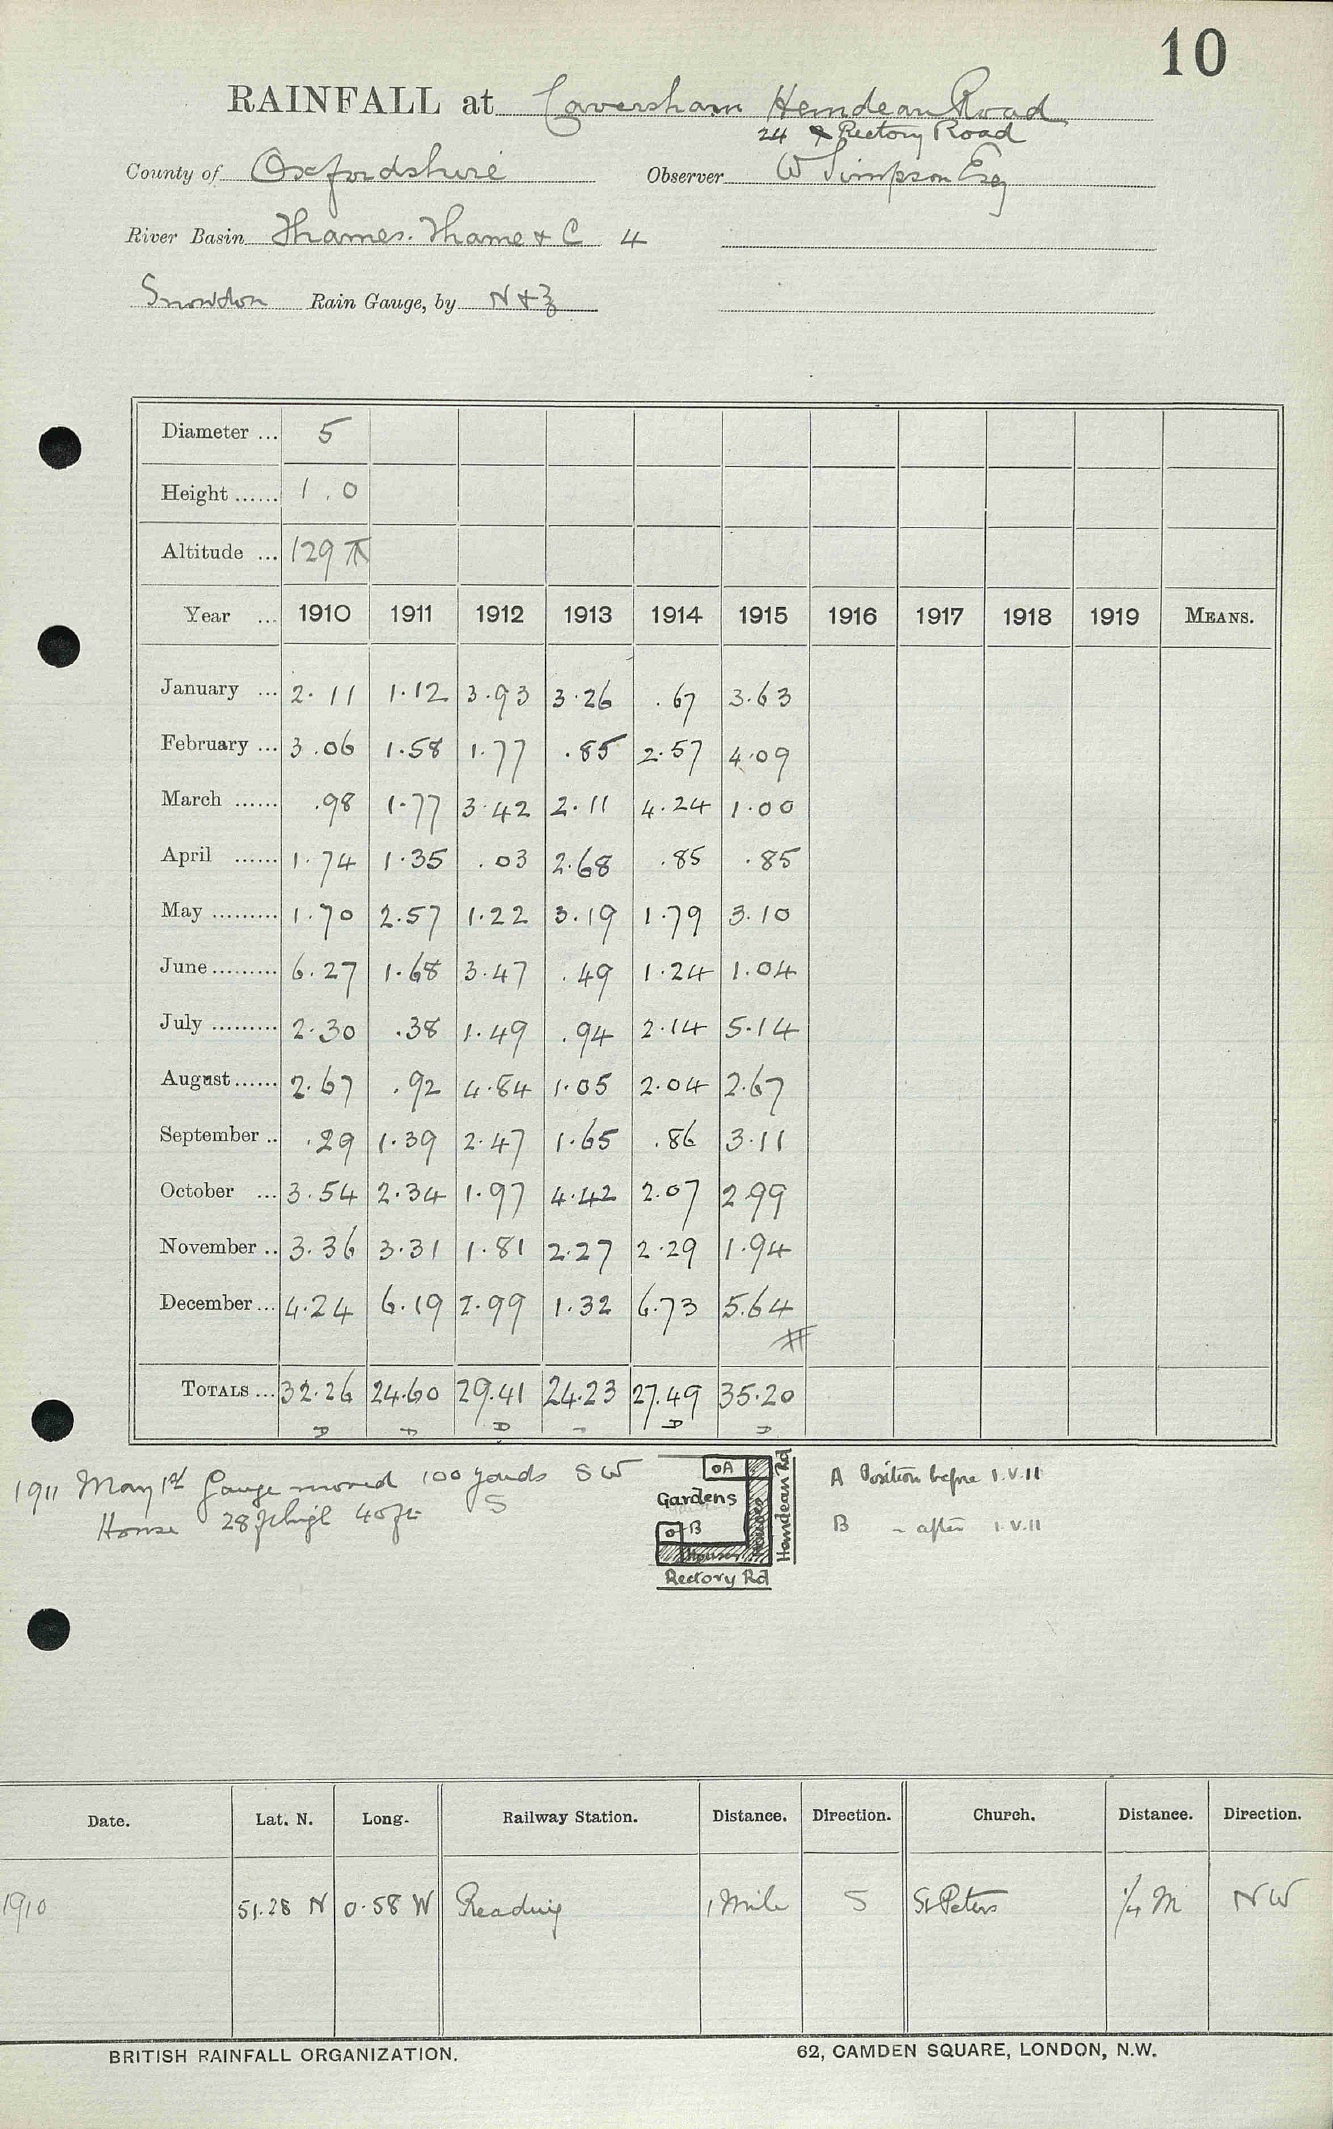 10
RAINFALL at Caversham Hemdean Road
24 Rectory Road
County of Oxfordshire Observer W Simpson Esq
River Basin Thames. Thame & C 4
Snowdon Rain Gauge, by N & Z
Diameter ... 5
Height ...... 1.0
Altitude ... 129
Year ... 1910 1911 1912 1913 1914 1915 1916 1917 1918 1919 MEANS.
January ... 2.11 1.12 3.93 3.26 .67 3.63
February ... 3.06 1.58 1.77 .85 2.57 4.09
March ...... .98 1.77 3.42 2.11 4.24 1.00
April ...... 1.74 1.35 .03 2.68 .85 .85
May ......... 1.70 2.57 1.22 3.19 1.79 3.10
June ......... 6.27 1.68 3.47 .49 1.24 1.04
July ......... 2.30 .38 1.49 .94 2.14 5.14
August ...... 2.67 .92 4.84 1.05 2.04 2.67
September .. .29 1.39 2.47 1.65 .86 3.11
October ... 3.54 2.34 1.97 4.42 2.07 2.99
November .. 3.36 3.31 1.81 2.27 2.29 1.94
December ... 4.24 6.19 2.99 1.32 6.73 5.64
TOTALS ... 32.26 24.60 29.41 24.23 27.49 35.20
1911 May 1st Gauge moved 100 yards SW
House 28 ft high 40 ft S
A
Gardens
B
Houses
Houses
Hemdean Rd
Rectory Rd
A Position before 1.V.11
B - after 1.V.11
Date. Lat. N. Long. Railway Station. Distance. Direction. Church. Distance. Direction.
1910 51.28 N 0.58 W Reading 1 Mile S St Peters 1/4 M NW
BRITISH RAINFALL ORGANIZATION. 62, CAMDEN SQUARE, LONDON, N.W.